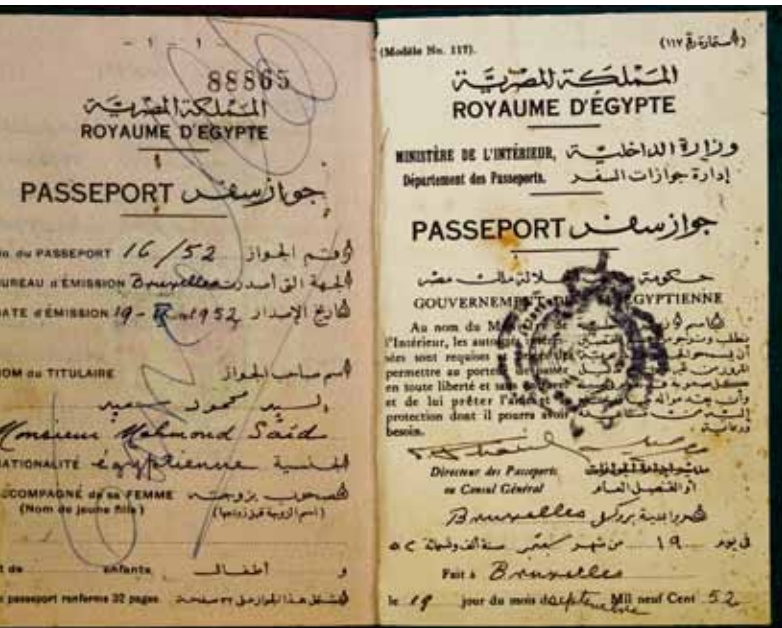 - 1 - 1 -
88865
المملكة المصرية
ROYAUME D'EGYPTE
PASSEPORT جواز سفر
No. du PASSEPORT 16/52 رقم الجواز
BUREAU d'ÉMISSION Bruxelles الجهة التى أصدرت
DATE d'ÉMISSION 19- 1952 تاريخ الإصدار
NOM du TITULAIRE اسم صاحب الجواز
السيد محمود سعيد
Monsieur Mahmoud Saïd
NATIONALITÉ égyptienne الجنسية
ACCOMPAGNÉ de sa FEMME مصحوب بزوجته
(Nom de jeune fille) (اسم الزوجة قبل زواجها)
et de enfants و أطفال
passeport renferme 32 pages يشتمل هذا الجواز على ٣٢ صفحة
(Modèle No. 117). (استمارة رقم ١١٧)
المملكة المصرية
ROYAUME D'ÉGYPTE
MINISTÈRE DE L'INTÉRIEUR, وزارة الداخلية
Département des Passeports. إدارة جوازات السفر
PASSEPORT جواز سفر
حكومة جلالة ملك مصر
GOUVERNEMENT ÉGYPTIENNE
Au nom du de
l'Intérieur, les
sées sont requises
permettre au porteur
en toute liberté et sans
et de lui prêter
protection dont il pourra avoir
besoin.
Directeur des Passeports
ou Consul Général أو القنصل العام
Bruxelles
فى يوم ١٩ من شهر سبتمبر سنة ألف وتسعمائة ٥٢
Fait à Bruxelles
le 19 jour du mois de septembre Mil neuf Cent 52